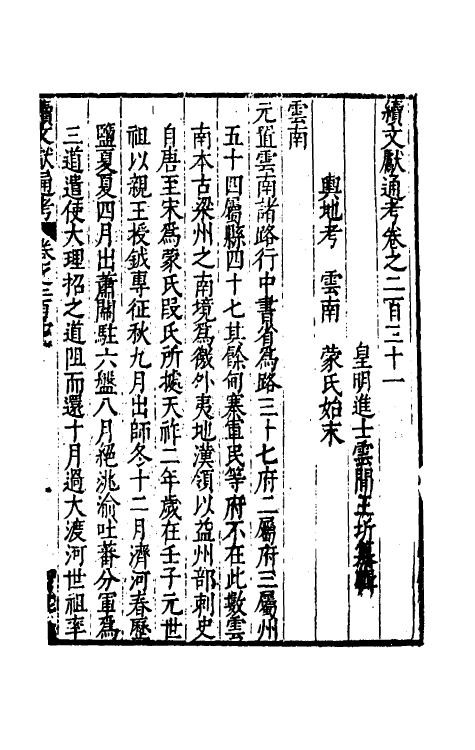 續文獻通考卷之二百三十一
皇明進士雲間王圻纂輯
輿地考　雲南　蒙氏始末
雲南
元置雲南諸路行中書省爲路三十七府二屬府三屬州
五十四屬縣四十七其餘甸寨軍民等府不在此數雲
南本古梁州之南境爲徼外夷地漢領以益州部刺史
自唐至宋爲蒙氏段氏所㩀天祚二年歲在壬子元世
祖以親王授鉞專征秋九月出師冬十二月濟河春歷
鹽夏夏四月出蕭關駐六盤八月絕洮渝吐蕃分軍爲
三道遣使大理招之道阻而還十月過大渡河世祖率
續文獻通考